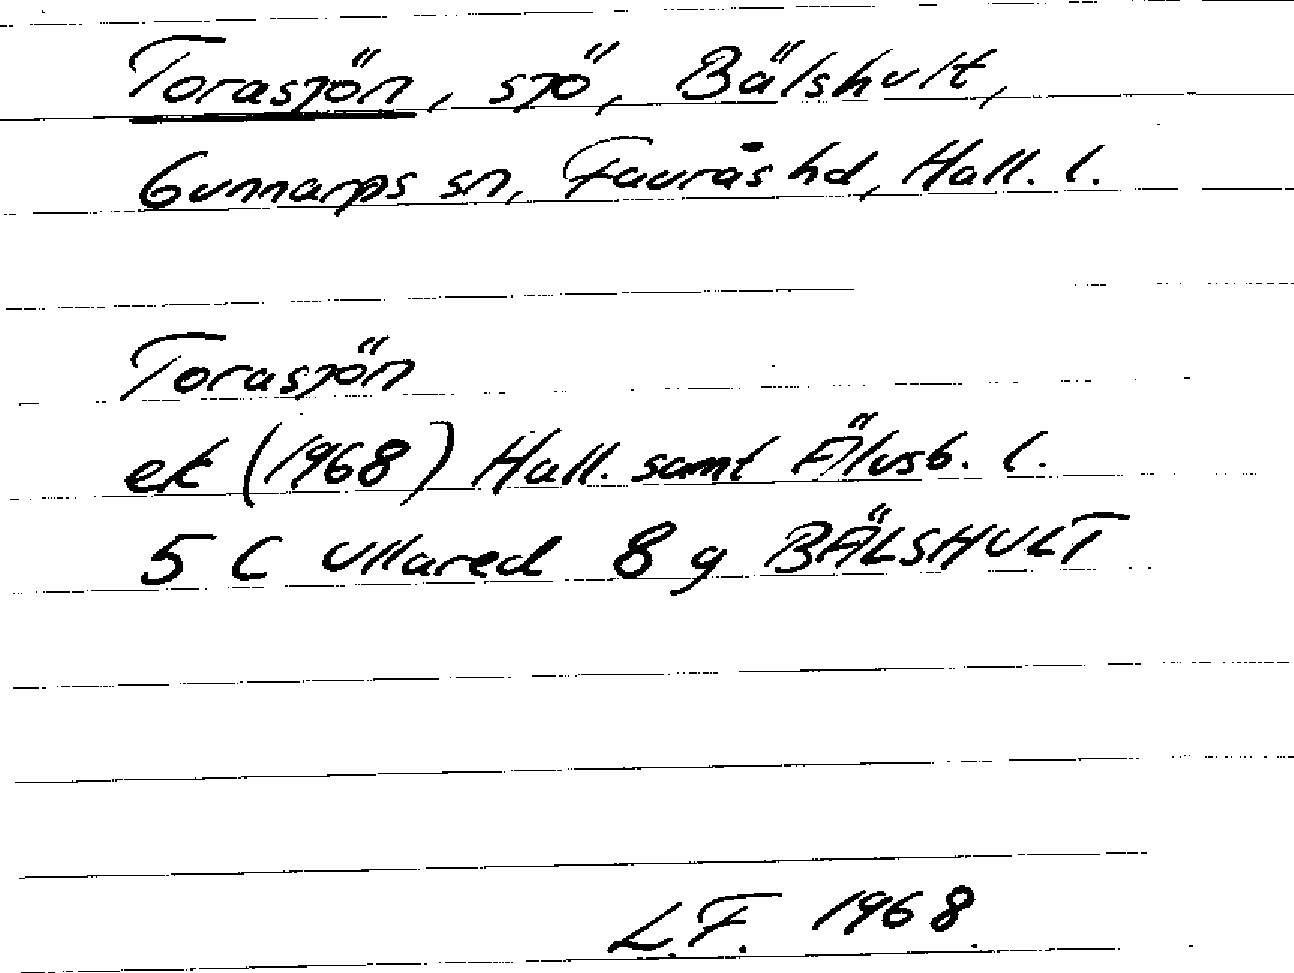 Torasjön, sjö, Bälshult,
Gunnarps sn, Faurås hd, Hall. l.
Torasjön
ek (1968) Hall. samt Älvsb. l.
5 C Ullared 8 g BÄLSHULT
L.F. 1968.